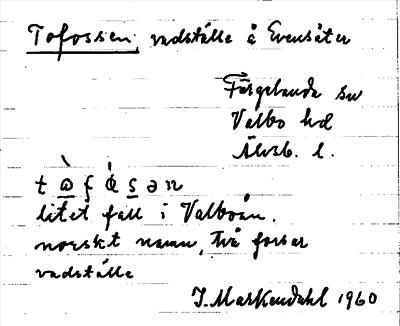 Tofossen, vadställe å Evensäter
Färgelanda sn
Valbo hd
Älvsb. l.
t ò̲ f ó̲ s̲ ə n
litet fall i Valboån.
norskt namn, två forsar
vadställe
J. Markendahl 1960